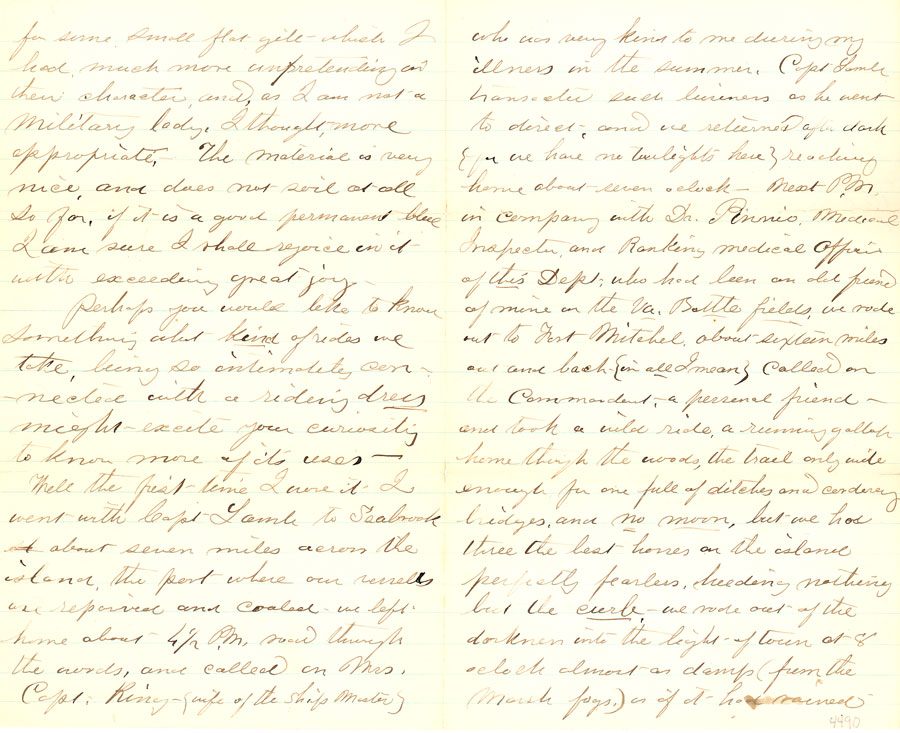 for some small flat gilt - which I
had much more unpretending in
their character, and, as I am not a
Military lady, I thought more
appropriate, - The material is very
nice, and does not soil at all
so far, if it is a good permanent blue
I am sure I shall rejoice in it
with exceeding great joy -
Perhaps you would like to know
something about kind of rides we
take, being so intimately con-
-nected with a riding dress
might - excite your curiosity
to know more of its uses -
Well the first time I wore it I
went with Capt Lamb to Seabrook
about seven miles across the
island, the port where our vessels
are repaired and coaled - we left
home about 4½ P.M. road through
the woods, and called on Mrs.
Capt. King - {wife of the Ships Master}
who was very kind to me during my
illness in the summer. Capt Lamb
transacted such business as he went
to direct, and we returned after dark
{for we have no twilights here} reaching
home about seven oclock - Next P.M.
in company with Dr. Medical
Inspector, and Ranking medical Officer
of this Dept, who had been an old friend
of mine on the Va. Battle fields, we rode
out to Fort Mitchel, about sixteen miles
out and back {in all I mean} called on
the Commandant, a personal friend -
and took a wild ride, a running gallop
home though the woods, the trail only wide
enough for one full of ditches and corderoy
bridges, and no moon, but we had
three the best horses on the island
perfectly fearless, heeding nothing
but the curb, - we rode out of the
darkness into the light of town at 8
oclock almost as damp (from the
Marsh fogs,) as if it had rained
4490